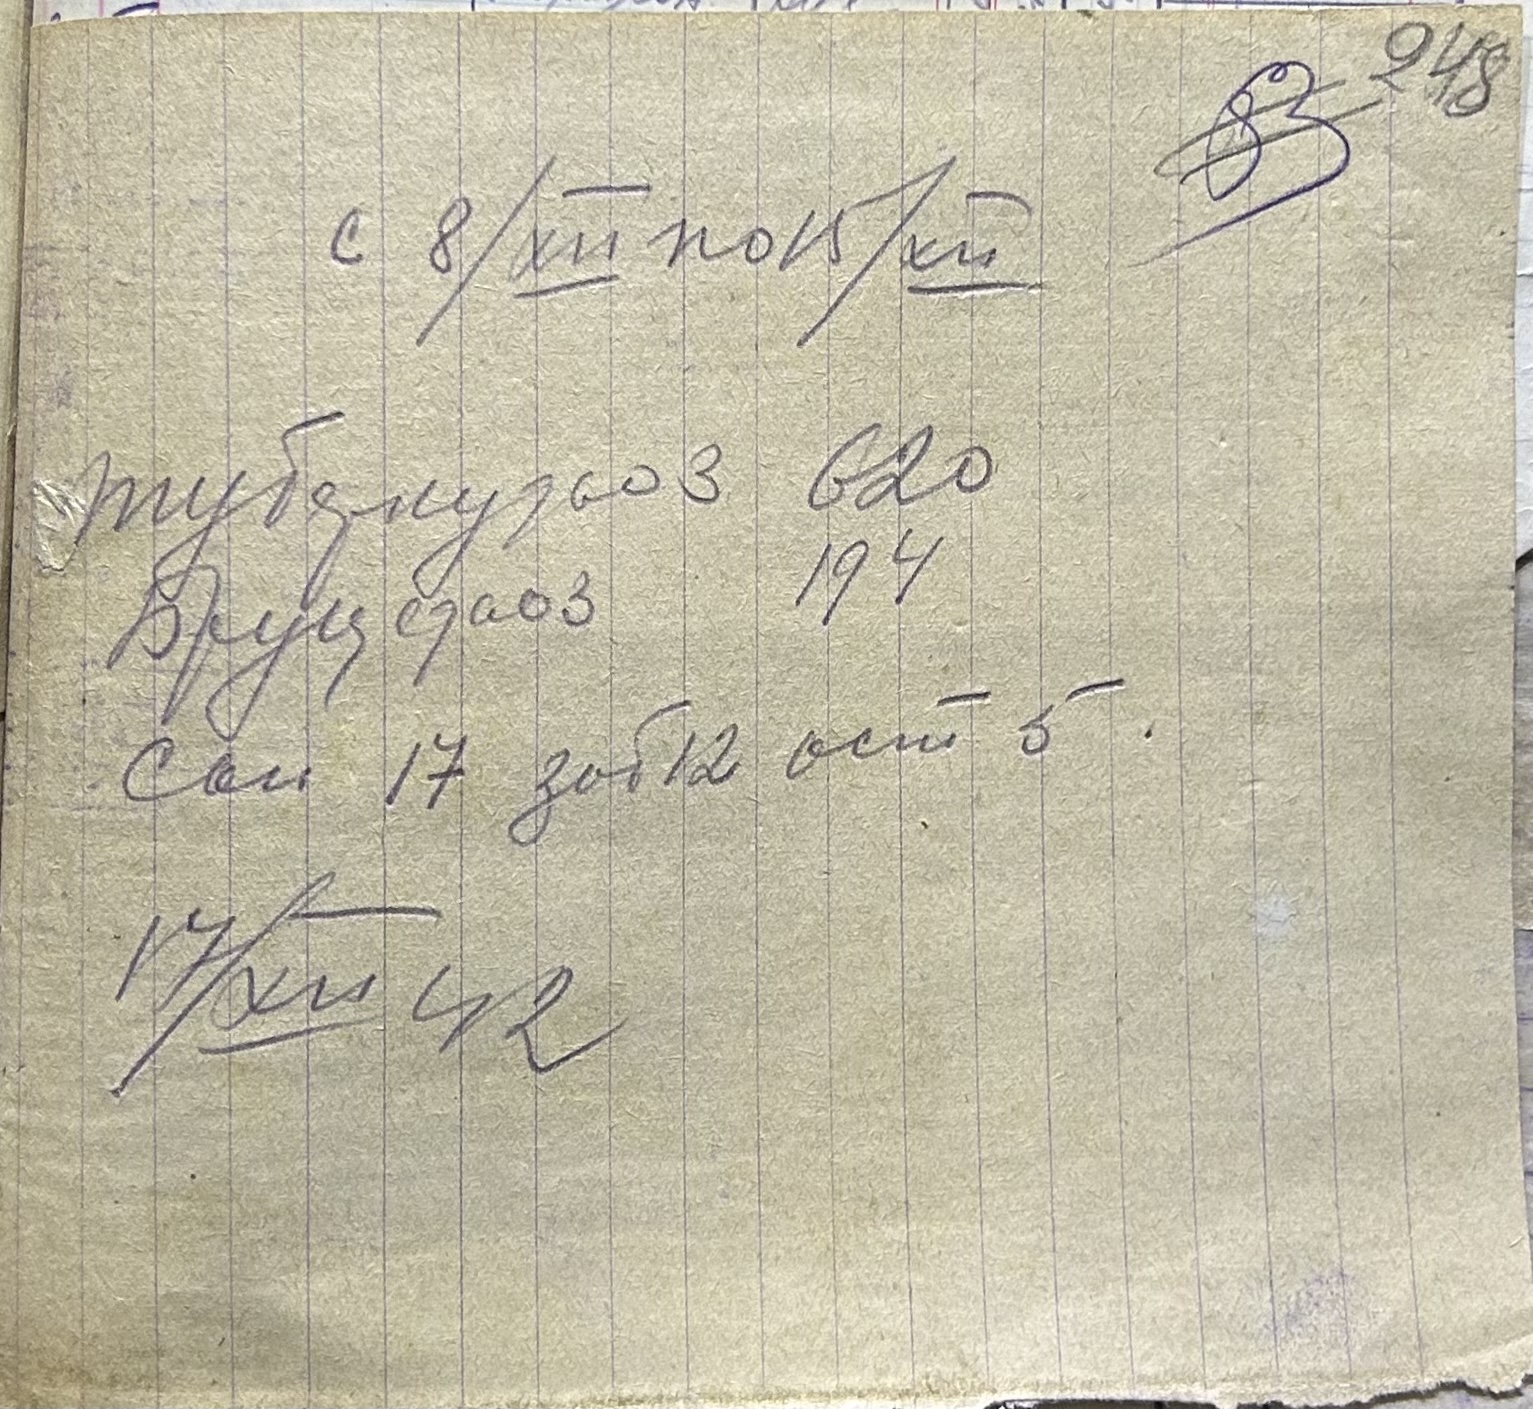 248
83
с 8/XII по 15/XII
тубąкулаоз 620
Бруцелаоз 194
Сап 17 заб 12 ост 5.
17/XII 42